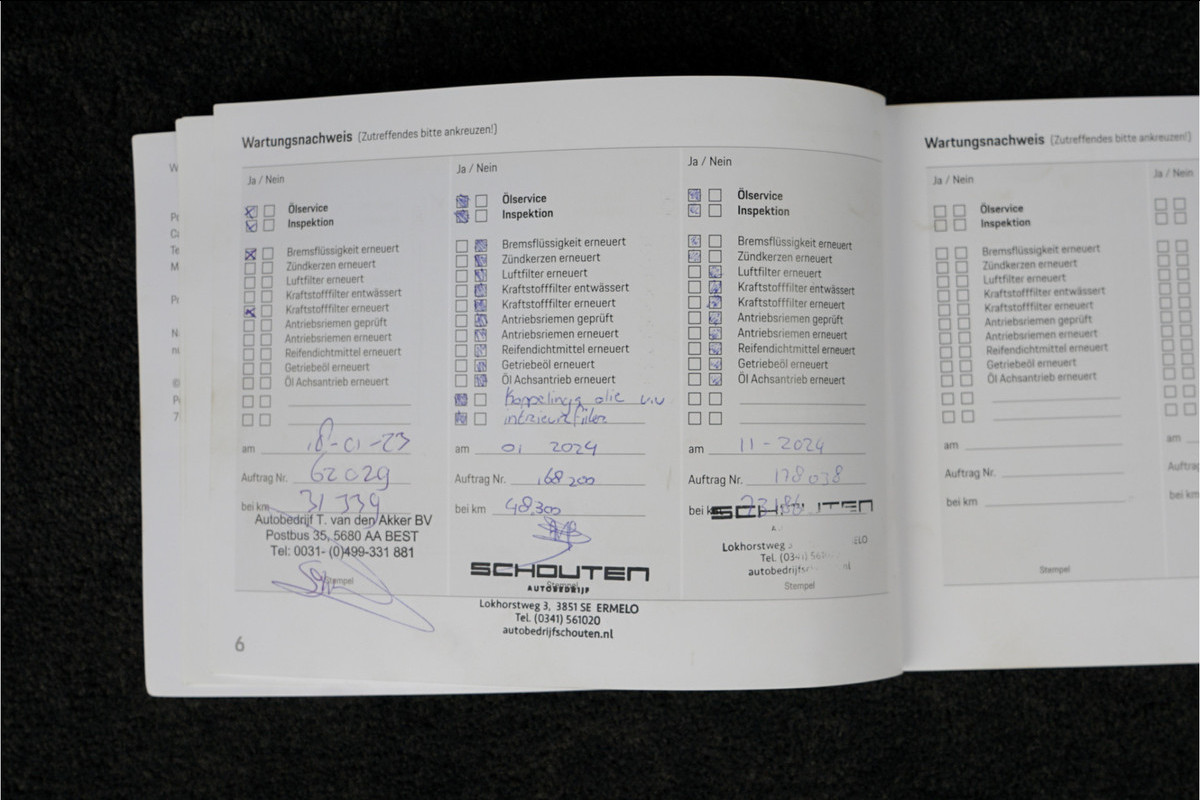 Wartungsnachweis (Zutreffendes bitte ankreuzen!)
Ja / Nein
Ölservice
Inspektion
Bremsflüssigkeit erneuert
Zündkerzen erneuert
Luftfilter erneuert
Kraftstofffilter entwässert
Kraftstofffilter erneuert
Antriebsriemen geprüft
Antriebsriemen erneuert
Reifendichtmittel erneuert
Getriebeöl erneuert
Öl Achsantrieb erneuert
am 18-01-23
Auftrag Nr. 62029
bei km 31339
Autobedrijf T. van den Akker BV
Postbus 35, 5680 AA BEST
Tel: 0031- (0)499-331 881
Stempel
6
Ja / Nein
Ölservice
Inspektion
Bremsflüssigkeit erneuert
Zündkerzen erneuert
Luftfilter erneuert
Kraftstofffilter entwässert
Kraftstofffilter erneuert
Antriebsriemen geprüft
Antriebsriemen erneuert
Reifendichtmittel erneuert
Getriebeöl erneuert
Öl Achsantrieb erneuert
Koppelings olie v.v
am 01 2024
Auftrag Nr. 168200
bei km 48,300
Stempel
SCHOUTEN
AUTOBEDRIJF
Lokhorstweg 3, 3851 SE ERMELO
Tel. (0341) 561020
autobedrijfschouten.nl
Ja / Nein
Ölservice
Inspektion
Bremsflüssigkeit erneuert
Zündkerzen erneuert
Luftfilter erneuert
Kraftstofffilter entwässert
Kraftstofffilter erneuert
Antriebsriemen geprüft
Antriebsriemen erneuert
Reifendichtmittel erneuert
Getriebeöl erneuert
Öl Achsantrieb erneuert
am 11-2024
Auftrag Nr. 178038
bei k
SCHOUTEN
Lokhorstweg
Tel.
Stempel
Wartungsnachweis (Zutreffendes bitte ankreuzen!)
Ja / Nein
Ölservice
Inspektion
Bremsflüssigkeit erneuert
Zündkerzen erneuert
Luftfilter erneuert
Kraftstofffilter entwässert
Kraftstofffilter erneuert
Antriebsriemen geprüft
Antriebsriemen erneuert
Reifendichtmittel erneuert
Getriebeöl erneuert
Öl Achsantrieb erneuert
am
Auftrag Nr.
bei km
Stempel
Ja / Nein
am
Auftrag
bei km